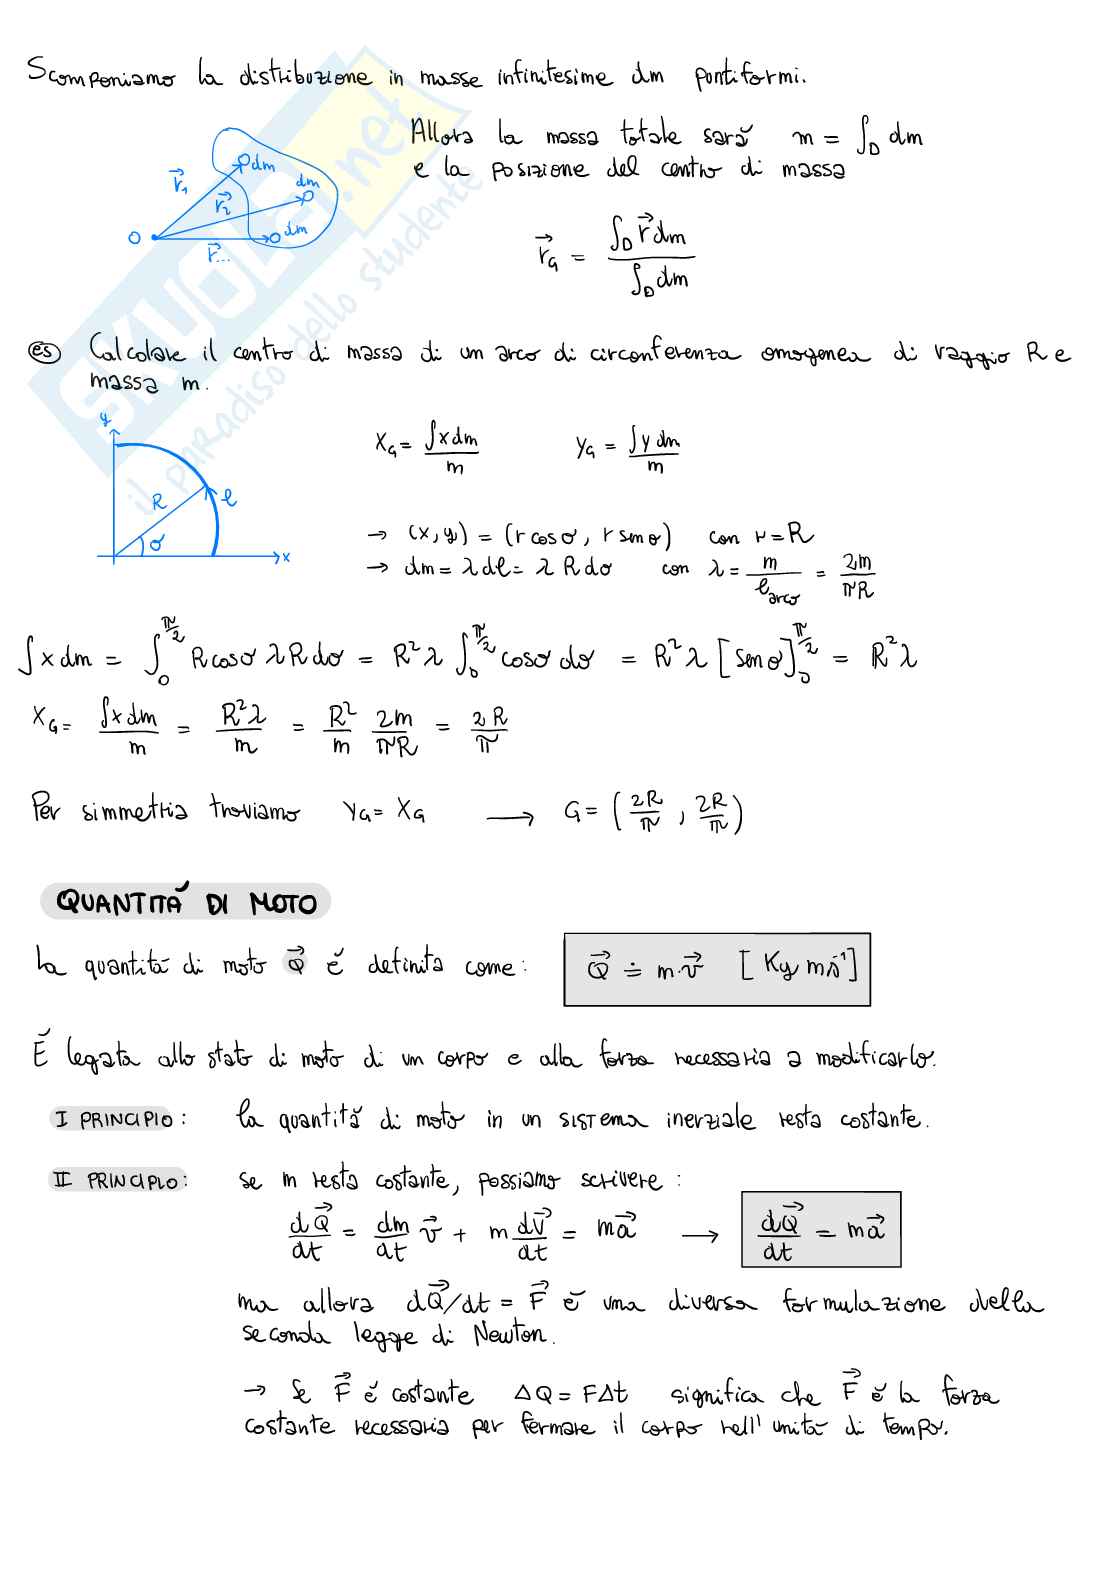 Scomponiamo la distribuzione in masse infinitesime dm puntiformi.
Allora la massa totale sarà m = ∫_D dm
e la posizione del centro di massa
r⃗₁ dm
r⃗₂ dm
O dm
r⃗...
r⃗_G = ∫_D r⃗ dm / ∫_D dm
es Calcolare il centro di massa di un arco di circonferenza omogenea di raggio R e
massa m.
y
R ℓ
θ x
x_G = ∫x dm / m y_G = ∫y dm / m
→ (x, y) = (r cos θ, r sen θ) con r = R
→ dm = λ dℓ = λ R dθ con λ = m / ℓ_arco = 2m / πR
∫x dm = ∫₀^{π/2} R cos θ λ R dθ = R² λ ∫₀^{π/2} cos θ dθ = R² λ [sen θ]₀^{π/2} = R² λ
x_G = ∫x dm / m = R² λ / m = R² / m 2m / πR = 2R / π
Per simmetria troviamo y_G = x_G → G = (2R/π, 2R/π)
QUANTITÀ DI MOTO
La quantità di moto Q⃗ è definita come: Q⃗ ≐ m·v⃗ [Kg m s⁻¹]
È legata allo stato di moto di un corpo e alla forza necessaria a modificarlo.
I PRINCIPIO: la quantità di moto in un sistema inerziale resta costante.
II PRINCIPIO: se m resta costante, possiamo scrivere:
dQ⃗/dt = dm/dt v⃗ + m dv⃗/dt = ma⃗ → dQ⃗/dt = ma⃗
ma allora dQ⃗/dt = F⃗ è una diversa formulazione della
seconda legge di Newton.
→ Se F⃗ è costante ΔQ = FΔt significa che F⃗ è la forza
costante necessaria per fermare il corpo nell' unità di tempo.
SKUOLA.net
il paradiso dello studente